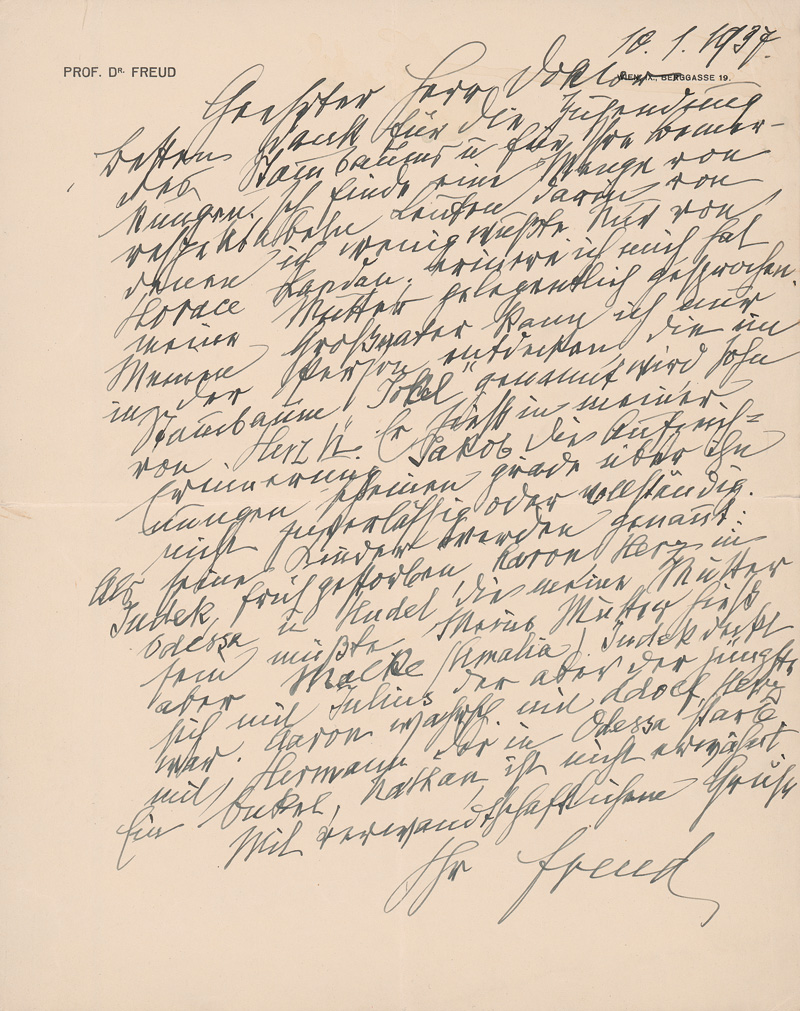 10. 1. 1937.
PROF. DR. FREUD
WIEN, IX., BERGGASSE 19.
Geehrter Herr Doktor
Besten Dank für die Zusendung
des Stammbaums u für Ihre Bemer-
kungen. Ich finde eine Menge von
respektabeln Leuten darin von
denen ich wenig wußte. Nur von
Horace Landau, erinnere ich mich hat
meine Mutter gelegentlich gesprochen.
Meinen Großvater kann ich nur
in der Person entdecken die im
Stammbaum "Jokel" genannt wird Sohn
von Herz N. Er hieß in meiner
Erinnerung Jakob, die Aufzeich=
nungen scheinen grade über ihn
nicht zuverlässig oder vollständig.
Als seine Kinder werden genannt:
Judek, früh gestorben, Aaron Herz in
Odessa u Hudel, die meine Mutter
sein müßte. Meine Mutter hieß
aber Malke (Amalia), Judek deckt
sich mit Julius der aber der jüngste
war. Aaron wahrsch mit Adolf, Herz
mit Hermann der in Odessa starb.
Ein Onkel, Nathan, ist nicht erwähnt.
Mit verwandtschaftlichem Gruß
Ihr Freud